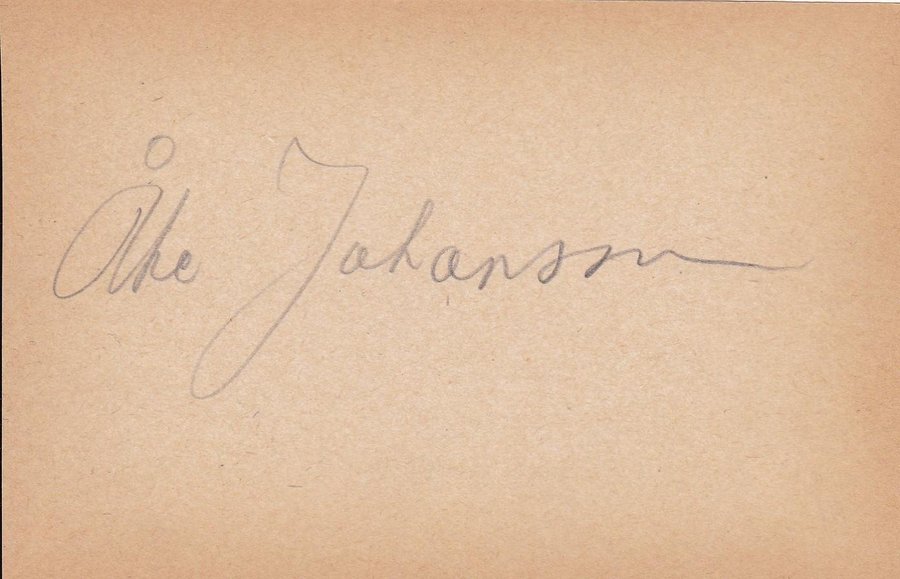 Åke Johansson